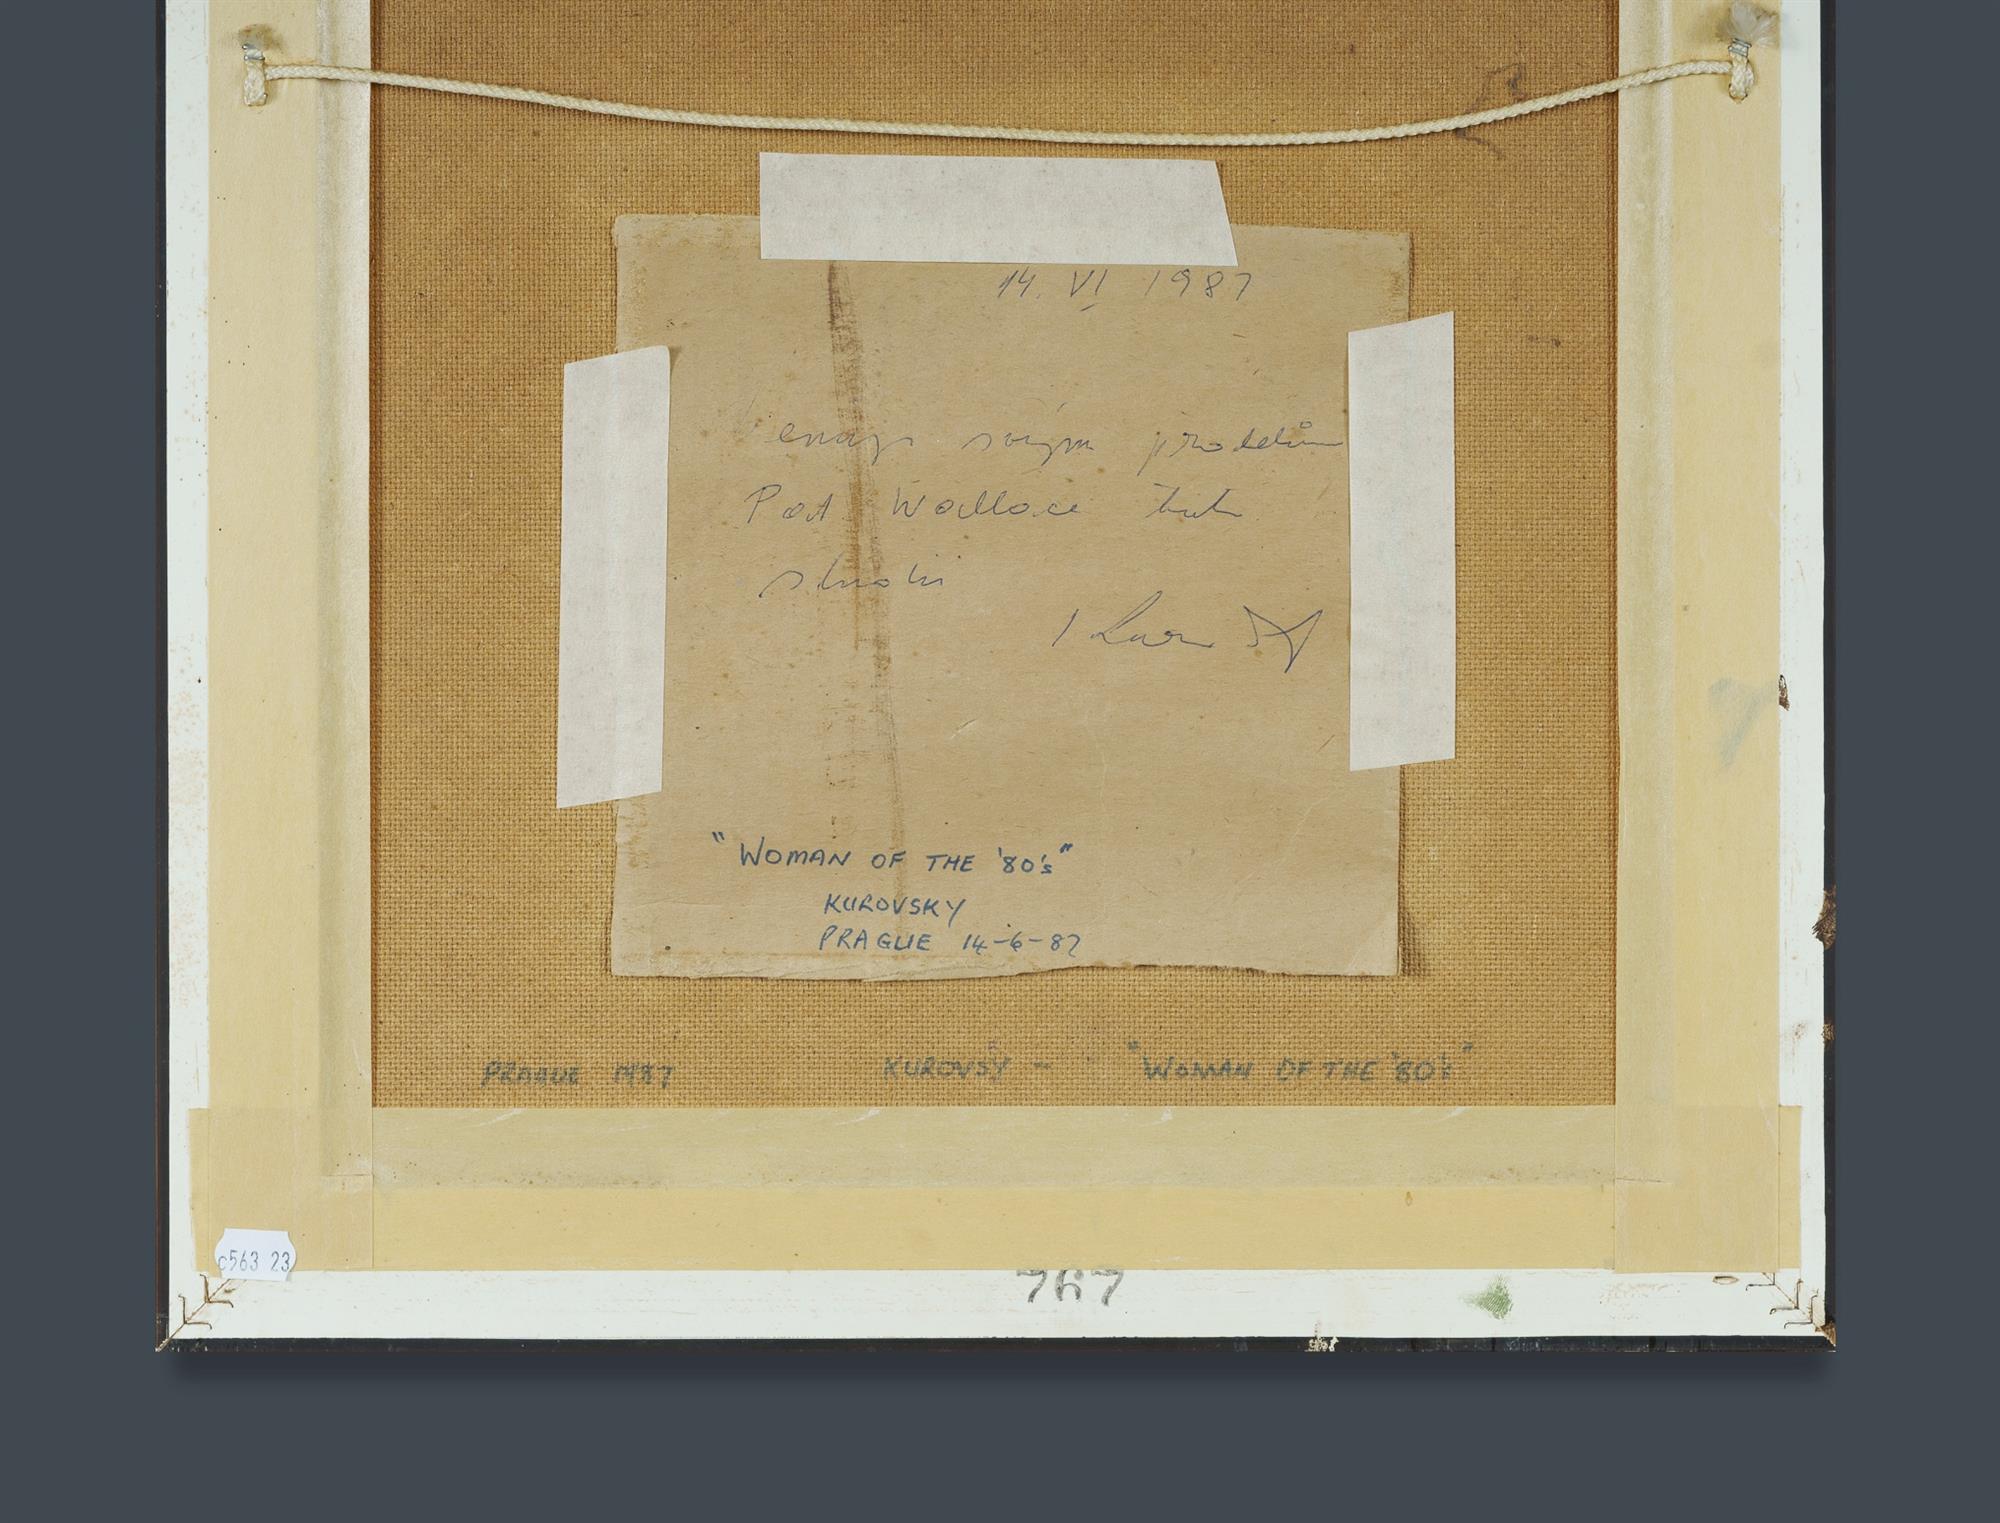 14. VI 1987
svým
Pat Wallace tuto
studii
"WOMAN OF THE '80's"
KUROVSKY
PRAGUE 14-6-87
PRAGUE 1987 KUROVSY - "WOMAN OF THE '80's"
c563 23
767